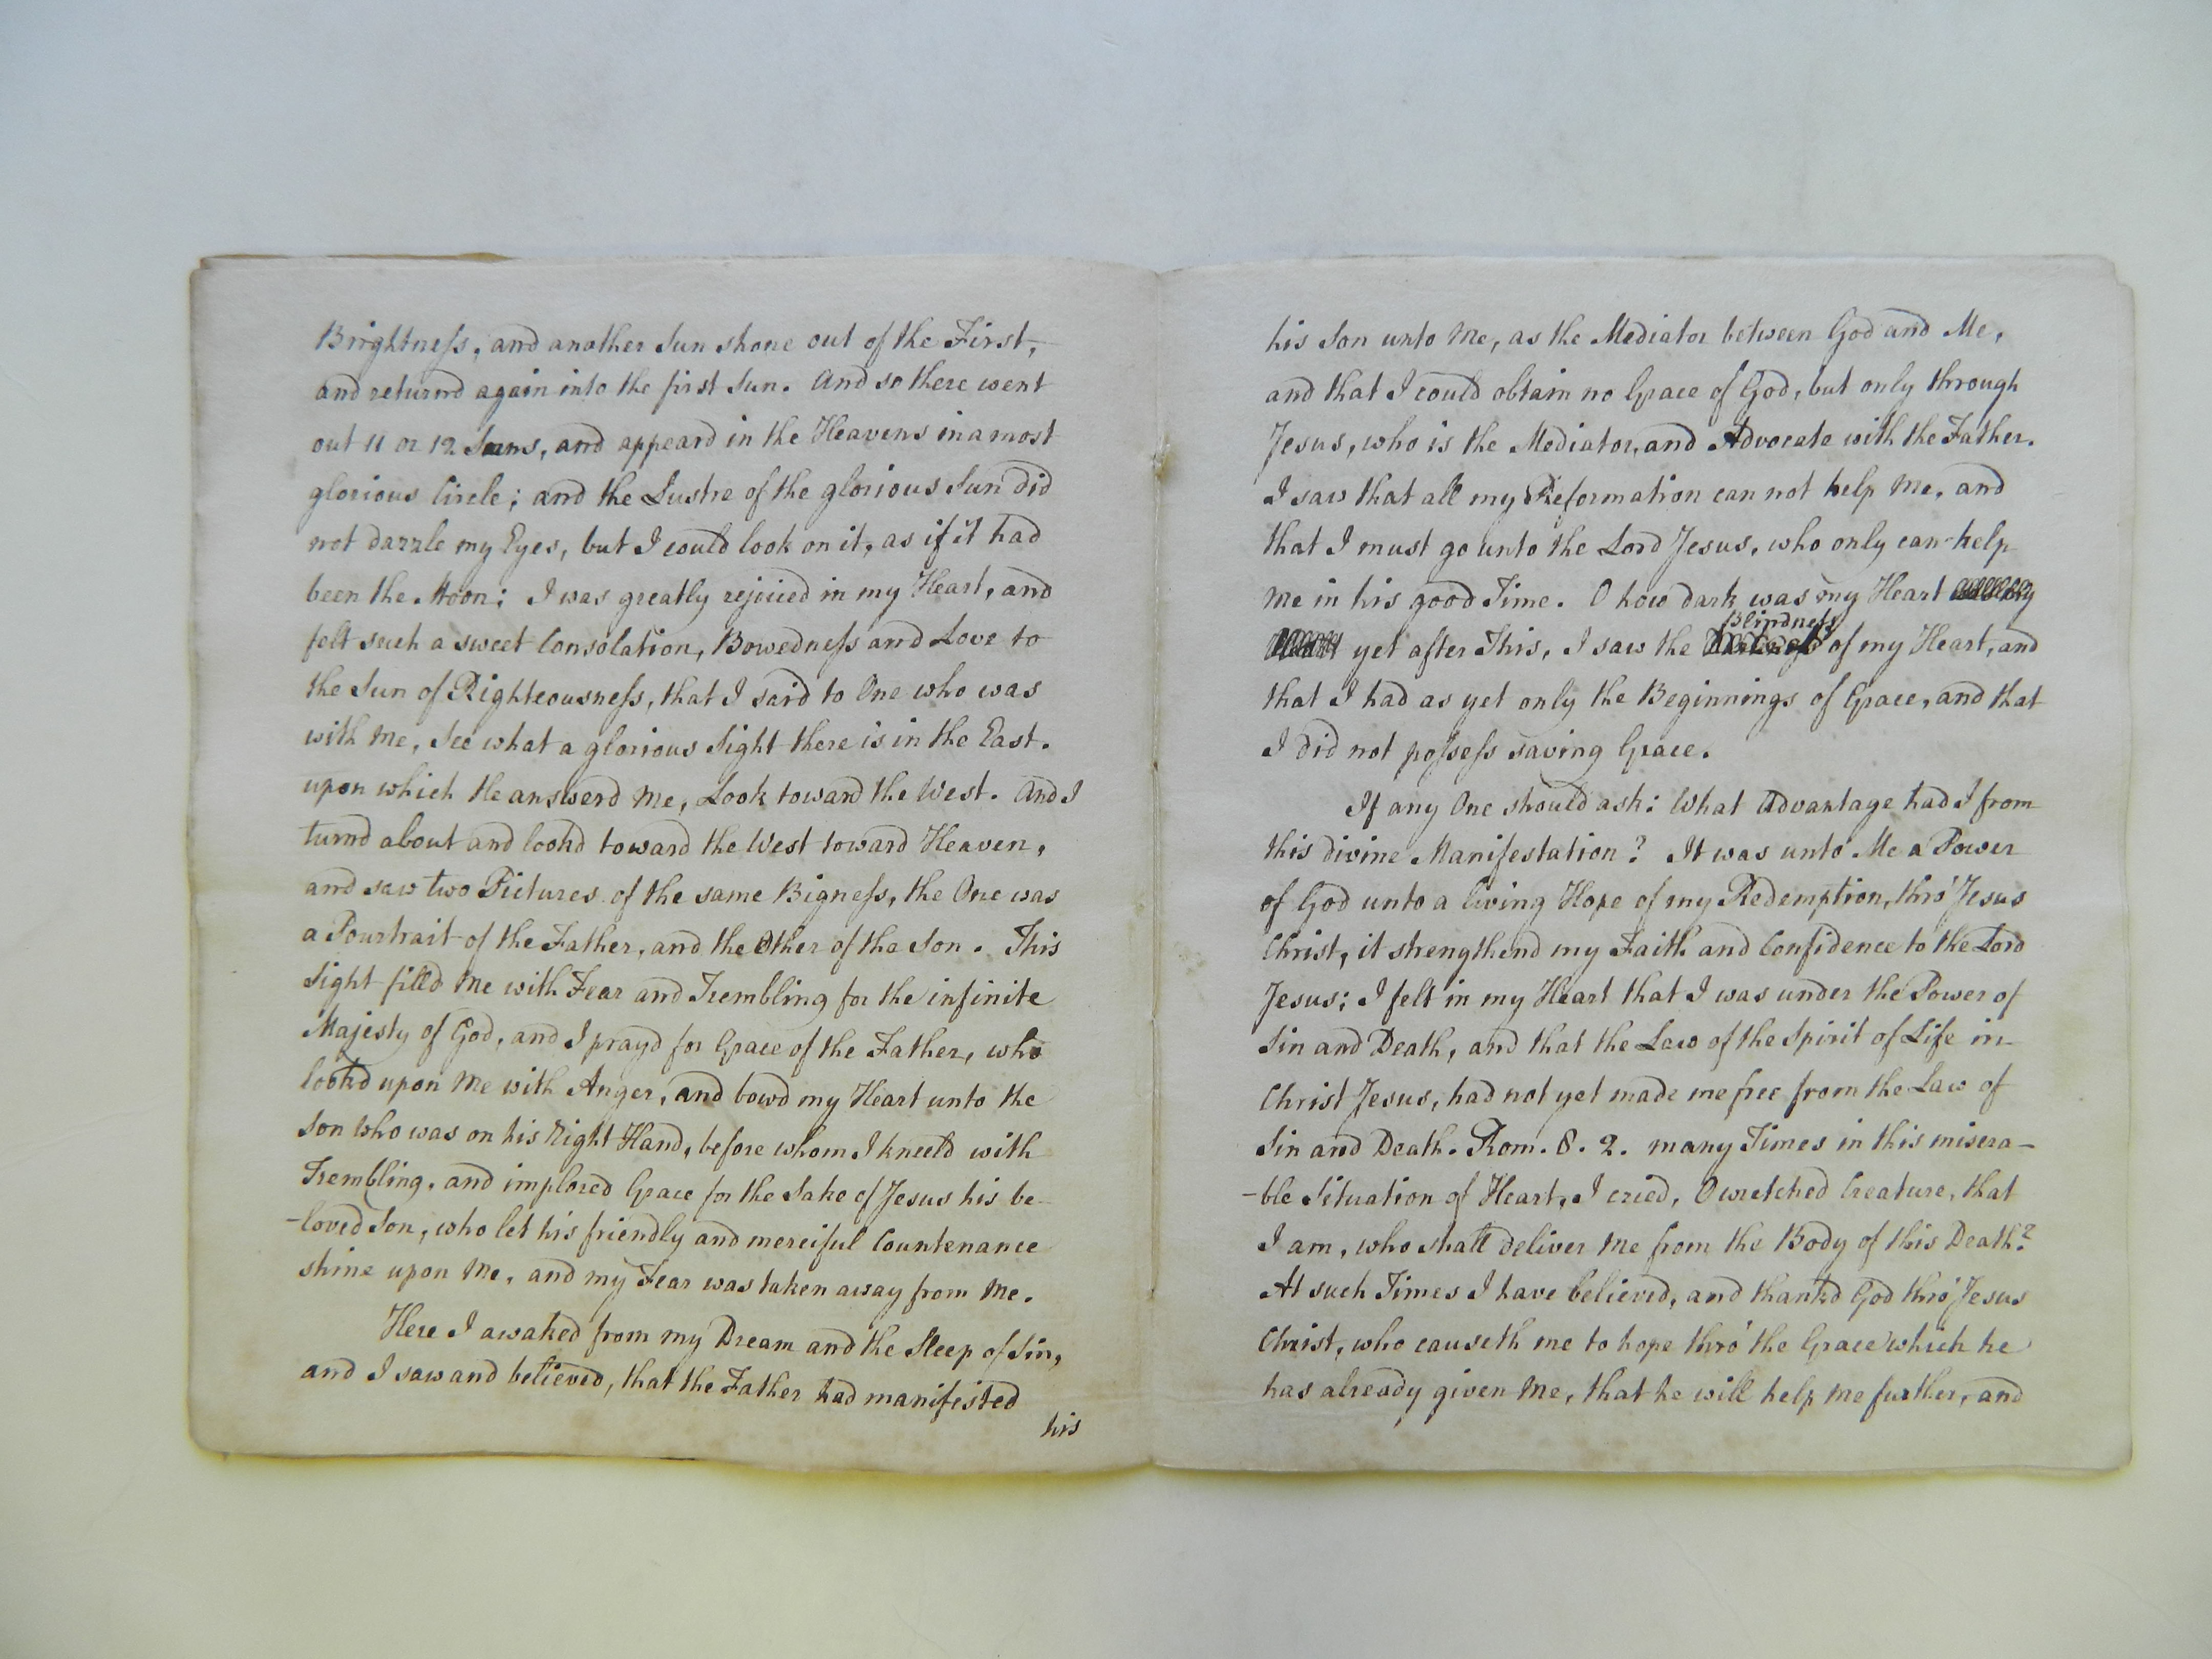 Brightness, and another Sun shone out of the First,
and returnd again into the first Sun. And so there went
out 11 or 12 Suns, and appeard in the Heavens in a most
glorious Circle; and the Lustre of the glorious Sun did
not dazzle my Eyes, but I could look on it, as if it had
been the Moon; I was greatly rejoiced in my Heart, and
felt such a sweet Consolation, Bowedness and Love to
the Sun of Righteousness, that I said to One who was
with me, See what a glorious Sight there is in the East.
upon which He answerd me, Look toward the West. And I
turnd about and lookd toward the West toward Heaven,
and saw two Pictures of the same Bigness, the One was
a Pourtrait of the Father, and the Other of the Son. This
Sight filld me with Fear and Trembling for the infinite
Majesty of God, and I prayd for Grace of the Father, who
lookd upon me with Anger, and bowd my Heart unto the
Son who was on his Right Hand, before whom I kneeld with
Trembling, and implored Grace for the Sake of Jesus his be-
-loved Son, who let his friendly and merciful Countenance
shine upon me, and my Fear was taken away from me.
Here I awaked from my Dream and the Sleep of Sin,
and I saw and believed, that the Father had manifested
his
his Son unto me, as the Mediator between God and Me,
and that I could obtain no Grace of God, but only through
Jesus, who is the Mediator, and Advocate with the Father.
I saw that all my Reformation can not help me, and
that I must go unto the Lord Jesus, who only can help
me in his good Time. O how dark was my Heart
Blindness
yet after This, I saw the of my Heart, and
that I had as yet only the Beginnings of Grace, and that
I did not possess saving Grace.
If any One should ask: What Advantage had I from
this divine Manifestation? It was unto Me a Power
of God unto a living Hope of my Redemption, thro' Jesus
Christ, it strengthend my Faith and Confidence to the Lord
Jesus; I felt in my Heart that I was under the Power of
Sin and Death, and that the Law of the Spirit of Life in
Christ Jesus, had not yet made me free from the Law of
Sin and Death. Rom. 8. 2. many Times in this misera-
-ble Situation of Heart, I cried, O wretched Creature, that
I am, who shall deliver me from the Body of this Death?
At such Times I have believed, and thankd God thro' Jesus
Christ, who causeth me to hope thro' the Grace which he
has already given me, that he will help me further, and